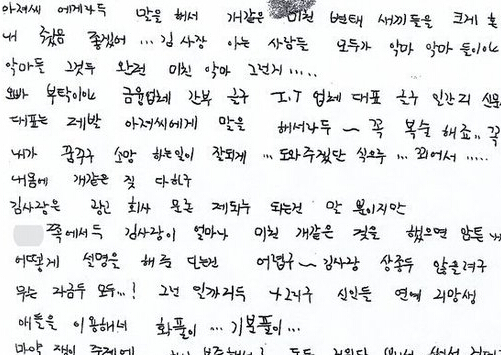 아저씨 에게라두 말을 해서 개같은 미친 변태 새끼들을 크게 혼
내 줬음 좋겠어 ... 김사장 아는 사람들 모두가 악마 악마 들이야
악마들 그것두 완전 미친 악마 그런거 .....
오빠 부탁이야 금융업체 간부 하구 I.T 업체 대표 하구 일간지 신문
대표는 제발 아저씨에게 말을 해서라두 ~ 꼭 복수 해죠.. 꼭
내가 꿈꾸구 소망 하는일이 잘되게 ... 도와주겠단 식으루 ... 꾀어서 .....
내몸에 개같은 짓 다하구
김사장은 광고 회사 물론 제의두 되는건 말 뿐이지만
쪽에서두 김사장이 얼마나 미친 개같은 짓을 했으면 암튼 내
어떻게 설명을 해 준 다는건 어렵구 ~ 김사장 상종두 않을려구
무는 지금두 모두 ..! 그런 일까리두 하구 신인들 연예 지망생
애들을 이용해서 화풀이 ... 기분풀이 ...